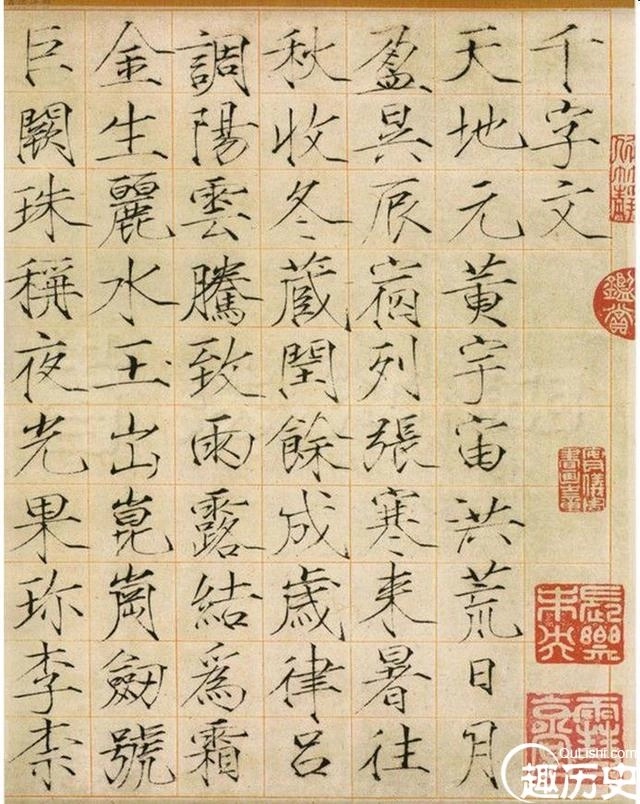 千字文
天地元黄宇宙洪荒日月
盈昃辰宿列張寒来暑往
秋收冬蔵閏餘成歳律呂
調陽雲騰致雨露結爲霜
金生麗水玉出崑崗劔號
巨闕珠稱夜光果珎李柰
鑑賞
QuLishi.com
趣历史